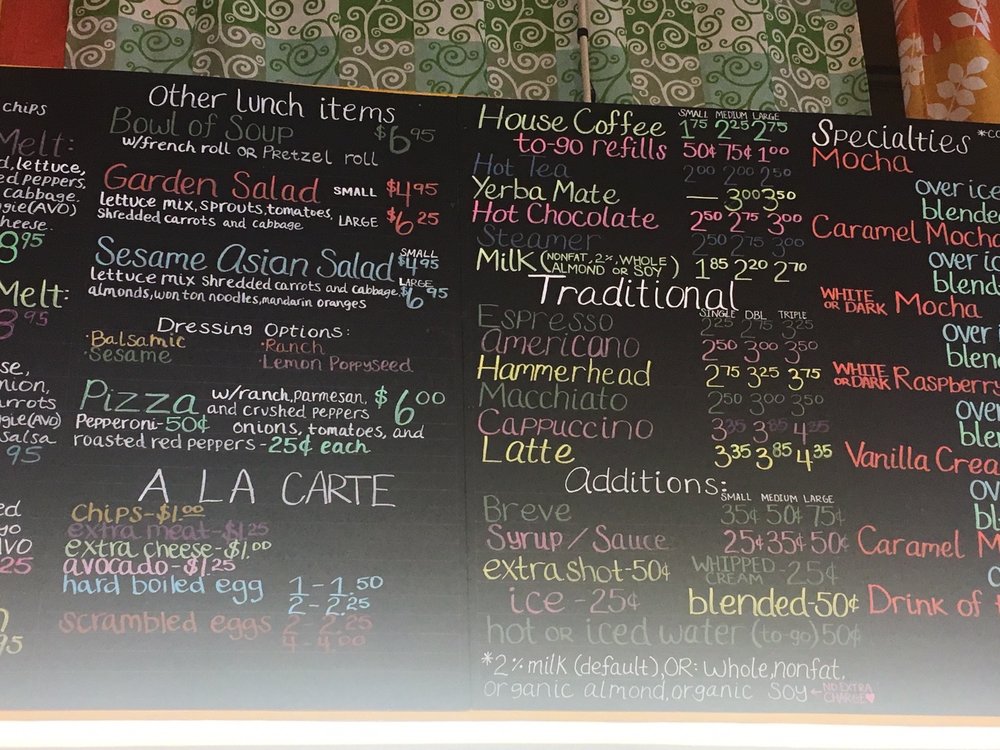 chips
Melt:
lettuce,
peppers,
cabbage.
(AVO)
cheese.
8 95
Melt:
8 95
carrots
(AVO)
salsa
95
AVO
25
95
Other Lunch items
Bowl of Soup $6 95
w/french roll OR Pretzel roll
Garden Salad SMALL $4 95
lettuce mix, sprouts, tomatoes,
shredded carrots and cabbage LARGE $6 25
Sesame Asian Salad SMALL $4 95
lettuce mix shredded carrots and cabbage, LARGE $6 95
almonds, wonton noodles, mandarin oranges
Dressing Options:
·Balsamic ·Ranch
·Sesame ·Lemon Poppyseed
Pizza w/ranch, parmesan, $6 00
and crushed peppers
Pepperoni-50¢ onions, tomatoes, and
roasted red peppers-25¢ each
A LA CARTE
Chips-$1.00
extra meat-$1.25
extra cheese-$1.00
avocado-$1.25
hard boiled egg 1-1.50
2-2.25
scrambled eggs 2-2.25
4-4.00
SMALL MEDIUM LARGE
House Coffee 1 75 2 25 2 75
to-go refills 50¢ 75¢ 1 00
Hot Tea 2 00 2 00 2 50
Yerba Mate — 3 00 3 50
Hot Chocolate 2 50 2 75 3 00
Steamer 2 50 2 75 3 00
Milk (NONFAT, 2%, WHOLE
ALMOND OR SOY) 1 85 2 20 2 70
Traditional
SINGLE DBL TRIPLE
Espresso 2 25 2 75 3 25
Americano 2 50 3 00 3 50
Hammerhead 2 75 3 25 3 75
Macchiato 2 50 3 00 3 50
Cappuccino 3 35 3 85 4 35
Latte 3 35 3 85 4 35
Additions:
SMALL MEDIUM LARGE
Breve 35¢ 50¢ 75¢
Syrup/Sauce 25¢ 35¢ 50¢
extra shot-50¢ WHIPPED CREAM-25¢
ice-25¢ blended-50¢
hot OR iced water (to go) 50¢
*2% milk (default), OR: whole, nonfat,
organic almond, organic soy ←NO EXTRA
CHARGE♥
Specialties *co
Mocha
over ice
blend
Caramel Mocha
over ic
blend
WHITE OR DARK Mocha
over
blen
WHITE OR DARK Raspberry
over
blen
Vanilla Crea
ov
bl
Caramel M
Drink of